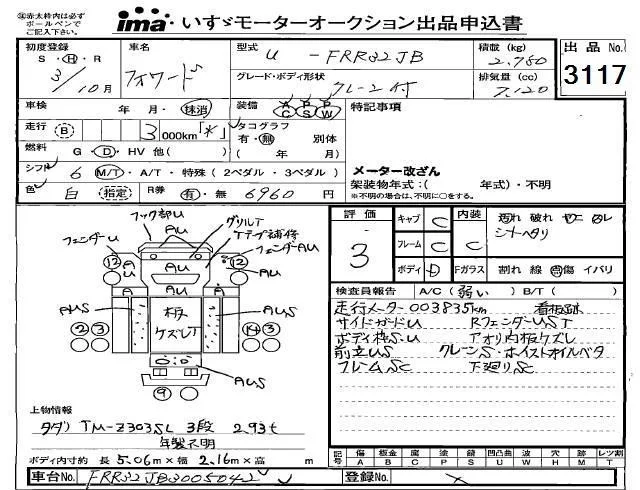 ※赤太枠内は必ず
ボールペンで
ご記入下さい。
ima いすゞモーターオークション出品申込書
初度登録 車名 型式 U - FRR32JB 積載(kg) 2,750 出品No.
S・H・R 3/10月 フォワード グレード・ボディ形状 クレーン付 排気量(cc) 7,120 3117
車検 年・月・抹消 装備 A P P C S W 特記事項
走行 B 3000km「*」 タコグラフ 有・無 別体
燃料 G・D・HV 他( ) ( 年 月)
シフト 6 M/T・A/T・特殊(2ペダル・3ペダル) メーター改ざん
色 白 指定 R券 有・無 6960円 架装物年式:( 年式)・不明
※不明の場合は、不明に○をする。
フック部U
フェンダーU グリルT
AU Tテープ補修
フェンダーAU
12 AU 12
A A
AUS 板 ケズレT AUS
2 3 14 3
AUS
9
評価 3 キャブ C 内装 C 汚れ 破れ ヤニ
フレーム C シートヘタリ
ボディ D Fガラス 割れ 線 飛傷 イバリ
検査員報告 A/C(弱い) B/T( )
走行メーター003835km 看板跡
サイドガードU RフェンダーUST
ボディ枠SU アオリ内板ケズレ
前立US クレーンS・ホイストオイルベタ
フレームSC 下廻りSC
上物情報
タダノ TM-Z303SL 3段 2.93t
年製不明
ボディ内寸約 長 5.06m×幅 2.16m×高 m
記号 傷 板金 腐 塗 錆 凹凸曲 波 穴 時 レツ割
A B C P S U W H M T
車台No. FRR32JB3005042 登録No.